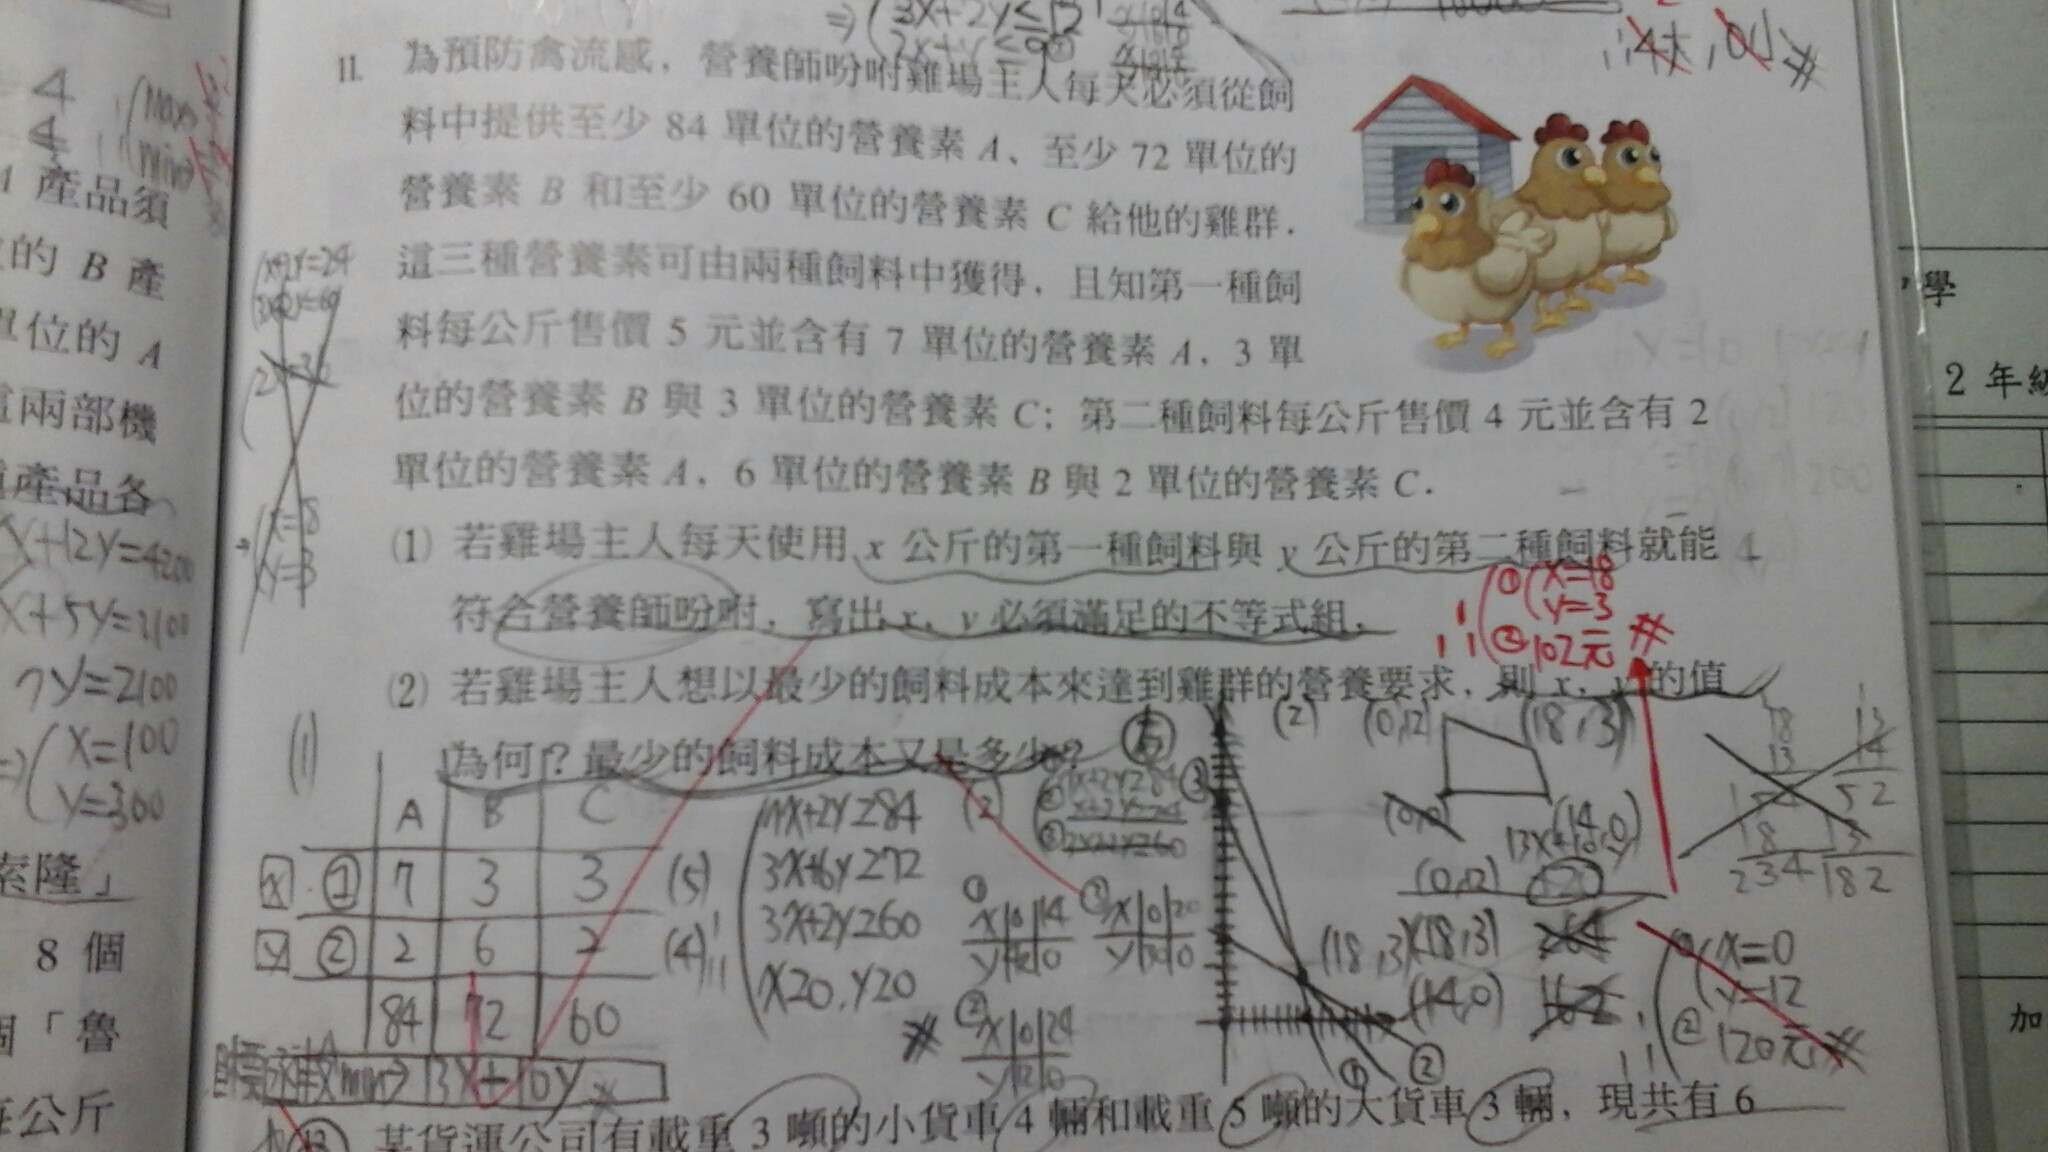 3x+2y≤12
11. 為預防禽流感，營養師吩咐雞場主人每天必須從飼
料中提供至少 84 單位的營養素 A、至少 72 單位的
營養素 B 和至少 60 單位的營養素 C 給他的雞群．
這三種營養素可由兩種飼料中獲得，且知第一種飼
料每公斤售價 5 元並含有 7 單位的營養素 A，3 單
位的營養素 B 與 3 單位的營養素 C；第二種飼料每公斤售價 4 元並含有 2
單位的營養素 A，6 單位的營養素 B 與 2 單位的營養素 C．
(1) 若雞場主人每天使用 x 公斤的第一種飼料與 y 公斤的第二種飼料就能
符合營養師吩咐，寫出 x，y 必須滿足的不等式組．
① x=18
y=3
② 102元
(2) 若雞場主人想以最少的飼料成本來達到雞群的營養要求，則 x，y 的值
為何？最少的飼料成本又是多少？
(1)
A B C
x ① 7 3 3 (5)
y ② 2 6 2 (4)
84 72 60
7x+2y≥84
3x+6y≥72
3x+2y≥60
x≥0, y≥0
(2)
① x 0
y 0
③ x 0 20
y 30 0
② x 0 24
y 12 0
(2) (0,12) (18,3)
(0,0) (14,0)
13x+10y
(0,12) 120
(18,3) (18,3)
(14,0)
x=0
y=12
② 120元
18 13
234 182
min→ 13x+10y
某貨運公司有載重 3 噸的小貨車 4 輛和載重 5 噸的大貨車 3 輛，現共有 6
4
4
A 產品須
的 B 產
單位的 A
這兩部機
產品各
x+12y=4200
x+5y=2100
7y=2100
x=100
y=300
索隆」
8 個
個「魯
每公斤
x=18
y=3
學
2 年級
加